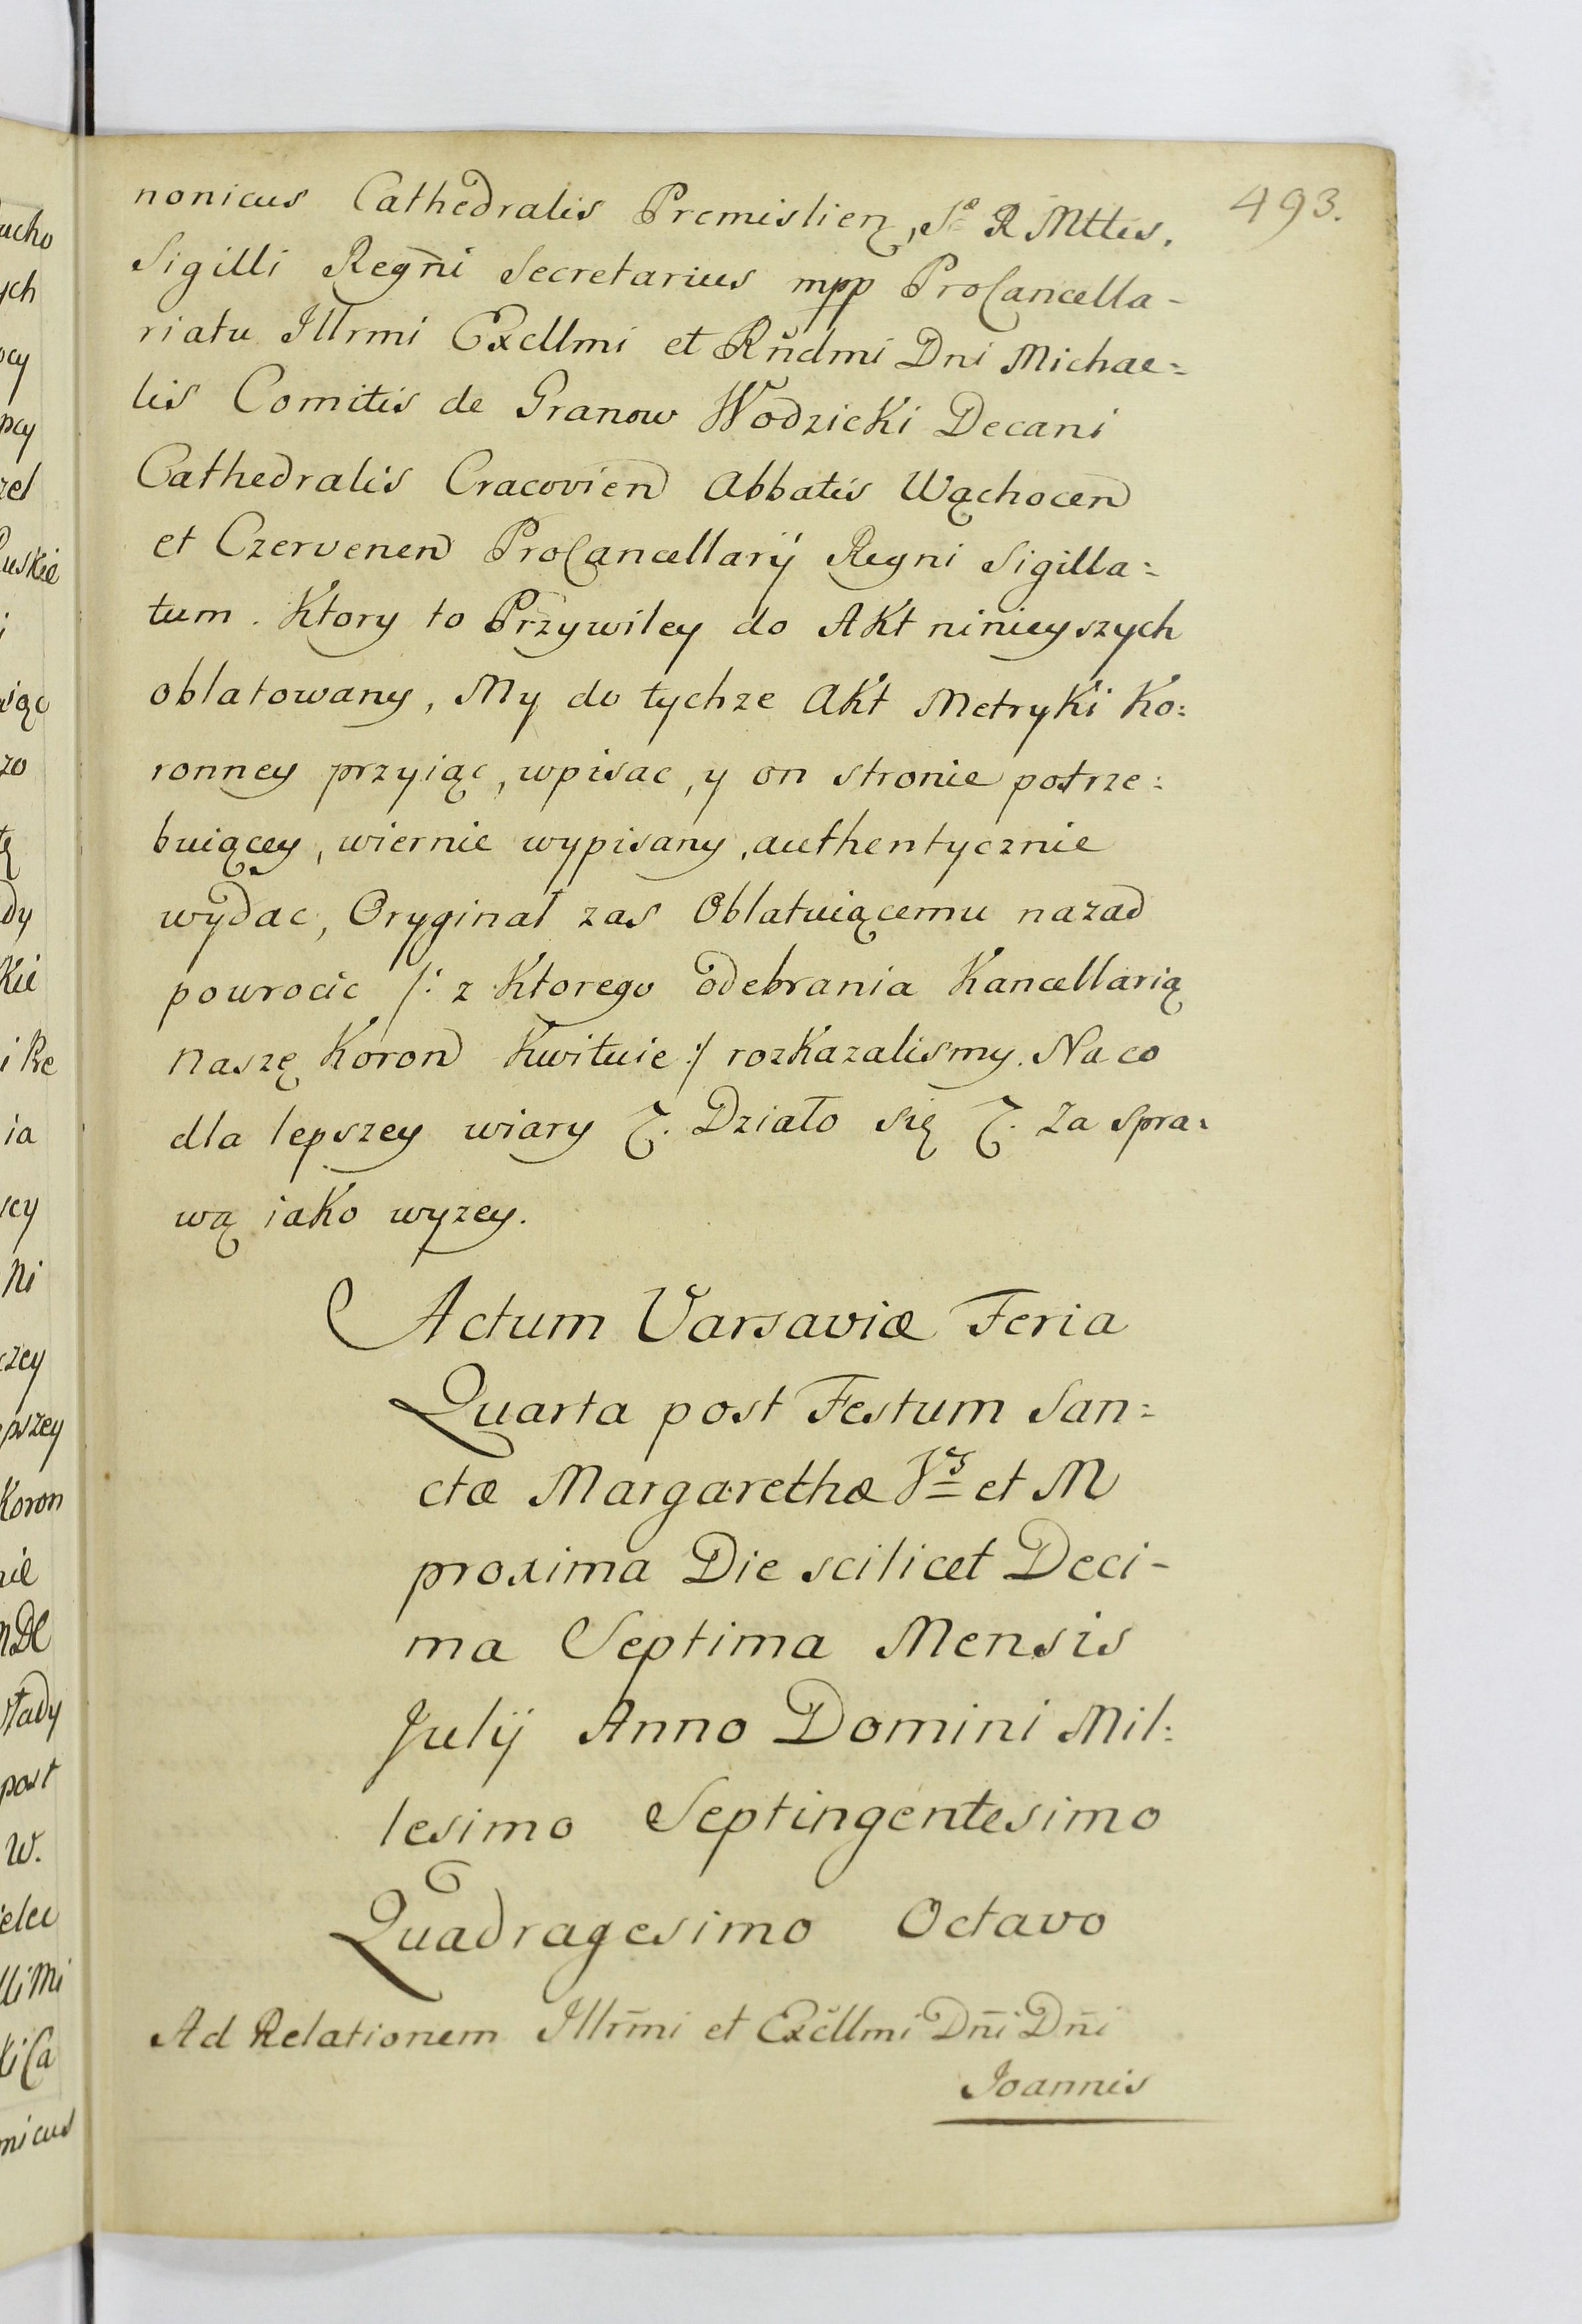 493.
nonicus Cathedralis Premislien, Sæ R Mttis.
Sigilli Regñi Secretarius mpp ProCancella-
riatu Illrmi Excllmi et Rñdmi Dni Michae=
lis Comitis de Granow Wodzicki Decani
Cathedralis Cracovien Abbatis Wąchocen
et Czervenen ProCancellarij Regni Sigilla=
tum. Ktory to Przywiley do Akt ninieyszych
oblatowany, My do tychze Akt Metryki Ko=
ronney przyiąc, wpisac, y on stronie potrze=
buiącey, wiernie wypisany, authentycznie
wydac, Oryginał zas Oblatuiącemu nazad
powrocic /: z Ktorego odebrania Kancellarią
naszę Koron Kwituie :/ rozkazalismy. Na co
dla lepszey wiary &. Działo się &. Za spra=
wą iako wyzey.
Actum Varsaviæ Feria
Quarta post Festum San=
ctæ Margarethæ Vs et M
proxima Die scilicet Deci-
ma Septima Mensis
Julij Anno Domini Mil=
lesimo Septingentesimo
Quadragesimo Octavo
Ad Relationem Illrm̃i et Excllmi Dñi Dñi
Joannis